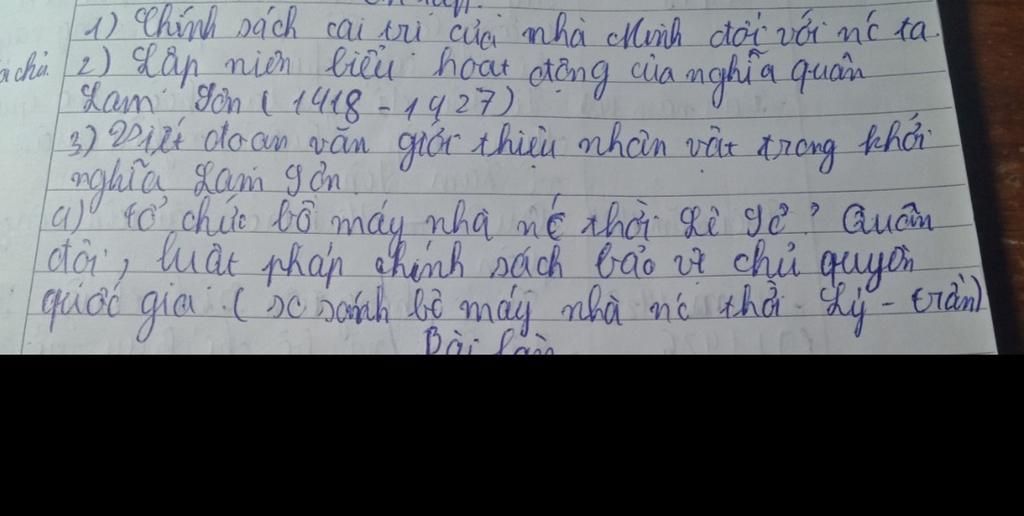 1) Chính sách cai trị của nhà Minh đối với nc ta.
2) Lập niên biểu hoạt động của nghĩa quân
Lam Sơn (1418 - 1427)
3) Viết đoạn văn giới thiệu nhân vật trong khởi
nghĩa Lam Sơn
4) tổ chức bộ máy nhà nc thời Lê Sơ? Quân
đội, luật pháp chính sách bảo vệ chủ quyền
quốc gia. (so sánh bộ máy nhà nc thời Lý - trần)
Bài làm